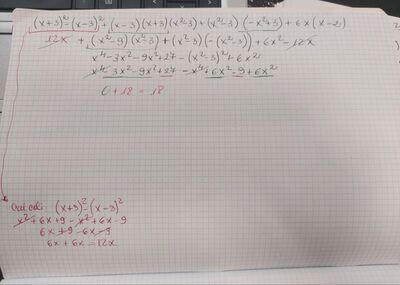 (x+3)² - (x-3)² + (x-3)(x+3)(x²-3) + (x²-3)(-x²+3) + 6x(x-2)
12x + (x²-9)(x²-3) + (x²-3)(-(x²-3)) + 6x² - 12x
x⁴ - 3x² - 9x² + 27 - (x²-3)² + 6x²
x⁴ - 3x² - 9x² + 27 - x⁴ + 6x² - 9 + 6x²
0 + 18 = 18
(x+3)² - (x-3)²
x² + 6x + 9 - x² + 6x - 9
6x + 9 - 6x - 9
6x + 6x = 12x